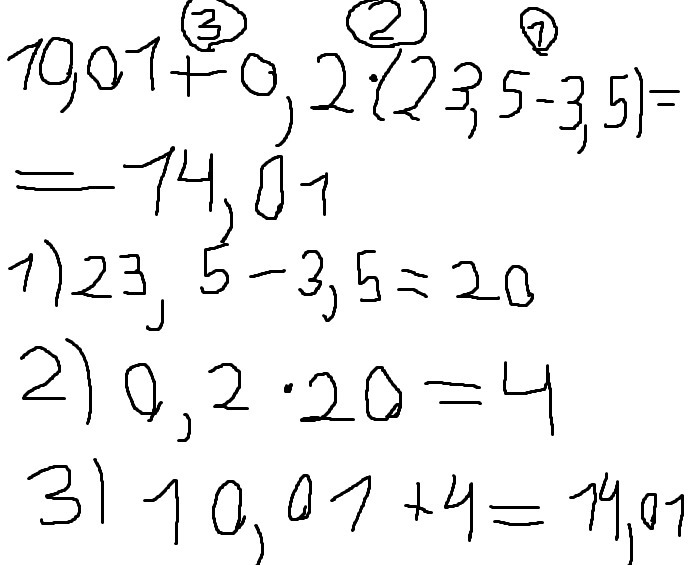 3 2 1
10,01+0,2·(23,5-3,5)=
=14,01
1)23,5-3,5=20
2)0,2·20=4
3)10,01+4=14,01